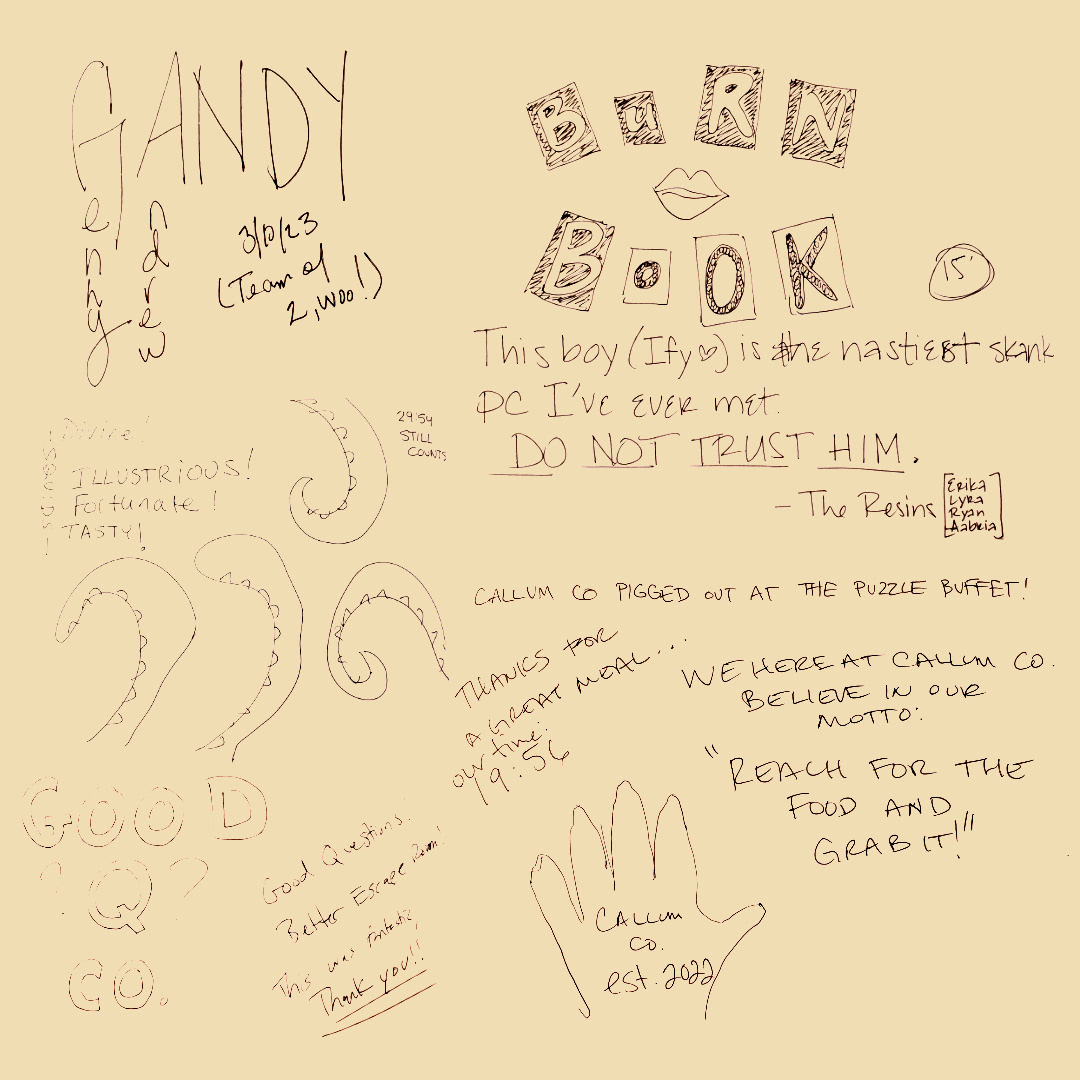 GANDY
Geneng
Andrew
3/10/23
(Team of
2, woo!)
BuRN
BoOK
15'
This boy (Ify♡) is the nastiest skank
PC I'VE EVER MET.
DO NOT TRUST HIM.
- The Resins [Erika
Lyra
Ryan
Aabria]
Divine!
ILLUSTRIOUS!
Fortunate!
TASTY!
29:59
STILL
COUNTS
CALLUM CO PIGGED OUT AT THE PUZZLE BUFFET!
THANKS FOR
A GREAT MEAL...
our time:
49:56
WE HERE AT CALLUM CO.
BELIEVE IN OUR
MOTTO:
"REACH FOR THE
FOOD AND
GRAB IT!"
CALLUM
CO.
est. 2022
GOOD
? Q ?
CO.
Good Questions.
Better Escape Room!
This was fantastic,
Thank you!!